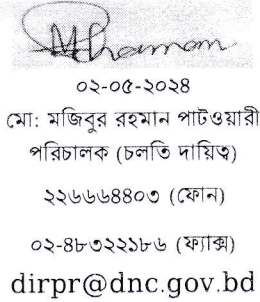 ০২-০৫-২০২৪
মো: মজিবুর রহমান পাটওয়ারী
পরিচালক (চলতি দায়িত্ব)
২২৬৬৬৪৪০৩ (ফোন)
০২-৪৮৩২২১৮৬ (ফ্যাক্স)
dirpr@dnc.gov.bd